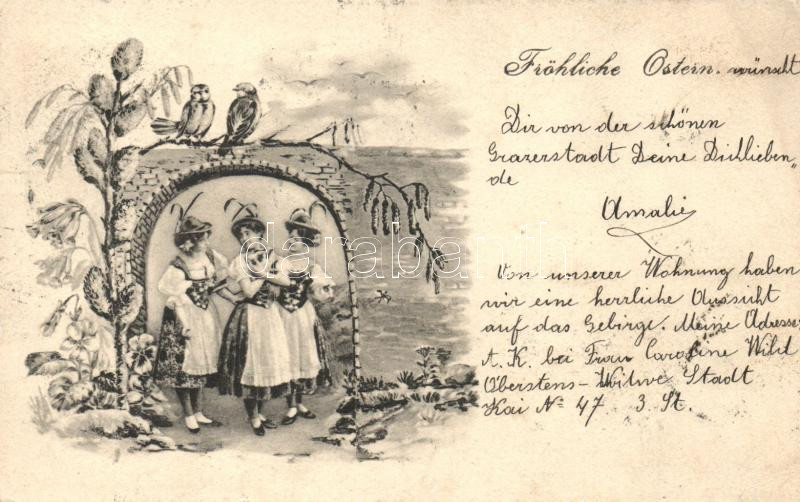 Fröhliche Ostern. wünscht
Dir von der schönen
Grazerstadt Deine Dichlieben„
de
Amalie
Von unserer Wohnung haben
wir eine herrliche Aussicht
auf das Gebirge. Meine Adresse:
A. K. bei Frau Caroline Wild
Oberstens-Witwe Stadt
Kai № 47 3. St.
darabanth